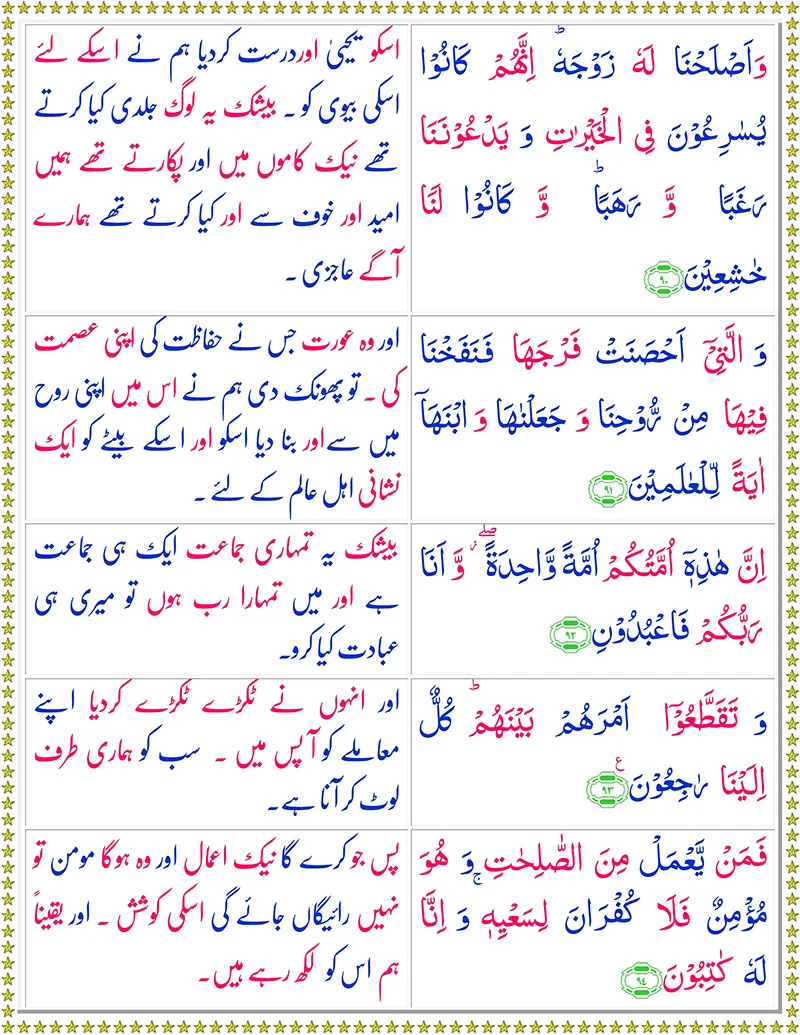 وَاَصْلَحْنَا لَهٗ زَوْجَهٗ ؕ اِنَّهُمْ كَانُوْا
يُسٰرِعُوْنَ فِى الْخَيْرٰتِ وَ يَدْعُوْنَنَا
رَغَبًا وَّ رَهَبًا ؕ وَّ كَانُوْا لَنَا
خٰشِعِيْنَ ﴿۹۰﴾
اسکو یحییٰ اوردرست کردیا ہم نے اسکے لئے
اسکی بیوی کو ۔ بیشک یہ لوگ جلدی کیا کرتے
تھے نیک کاموں میں اور پکارتے تھے ہمیں
امید اور خوف سے اور کیا کرتے تھے ہمارے
آگے عاجزی ۔
وَ الَّتِىْۤ اَحْصَنَتْ فَرْجَهَا فَنَفَخْنَا
فِيْهَا مِنْ رُّوْحِنَا وَ جَعَلْنٰهَا وَ ابْنَهَاۤ
اٰيَةً لِّلْعٰلَمِيْنَ ﴿۹۱﴾
اور وہ عورت جس نے حفاظت کی اپنی عصمت
کی ۔ تو پھونک دی ہم نے اس میں اپنی روح
میں سےاور بنا دیا اسکو اور اسکے بیٹے کو ایک
نشانی اہل عالم کے لئے ۔
اِنَّ هٰذِهٖۤ اُمَّتُكُمْ اُمَّةً وَّاحِدَةً ۖ وَّ اَنَا
رَبُّكُمْ فَاعْبُدُوْنِ ﴿۹۲﴾
بیشک یہ تمہاری جماعت ایک ہی جماعت
ہے اور میں تمہارا رب ہوں تو میری ہی
عبادت کیا کرو۔
وَ تَقَطَّعُوْۤا اَمْرَهُمْ بَيْنَهُمْ ؕ كُلٌّ
اِلَيْنَا رٰجِعُوْنَ ﴿۹۳﴾ ع
اور انہوں نے ٹکڑے ٹکڑے کردیا اپنے
معاملے کو آپس میں ۔ سب کو ہماری طرف
لوٹ کر آنا ہے۔
فَمَنْ يَّعْمَلْ مِنَ الصّٰلِحٰتِ وَ هُوَ
مُؤْمِنٌ فَلَا كُفْرَانَ لِسَعْيِهٖ ۚ وَ اِنَّا
لَهٗ كٰتِبُوْنَ ﴿۹۴﴾
پس جو کرے گا نیک اعمال اور وہ ہوگا مومن تو
نہیں رائیگاں جائے گی اسکی کوشش ۔ اور یقیناً
ہم اس کو لکھ رہے ہیں۔